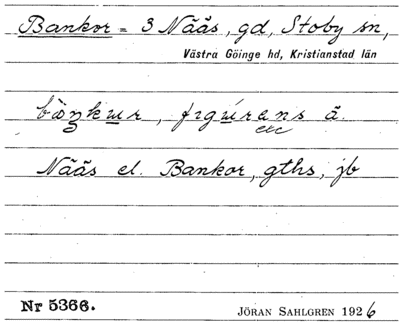 Bankor = 3 Nääs, gd, Stoby sn,
Västra Göinge hd, Kristianstad län
frgúrens ä.
etc
Nääs el. Bankor, gths, jb
Nr 5366.
JÖRAN SAHLGREN 1926